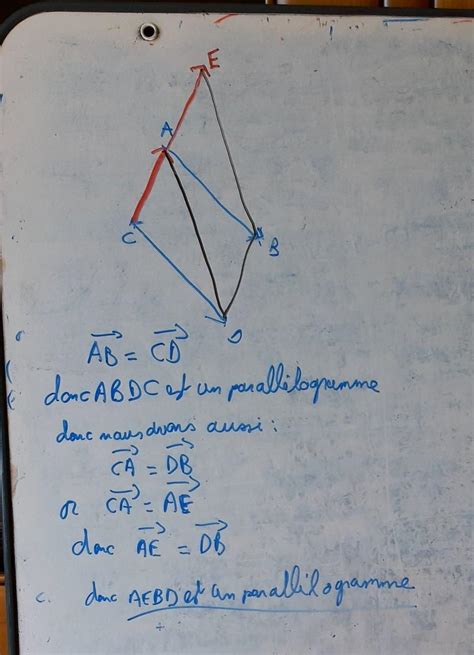 E
A
C
B
D
AB = CD
donc ABDC est un parallélogramme
donc nous avons aussi :
CA = DB
or CA = AE
donc AE = DB
c. donc AEBD est un parallélogramme